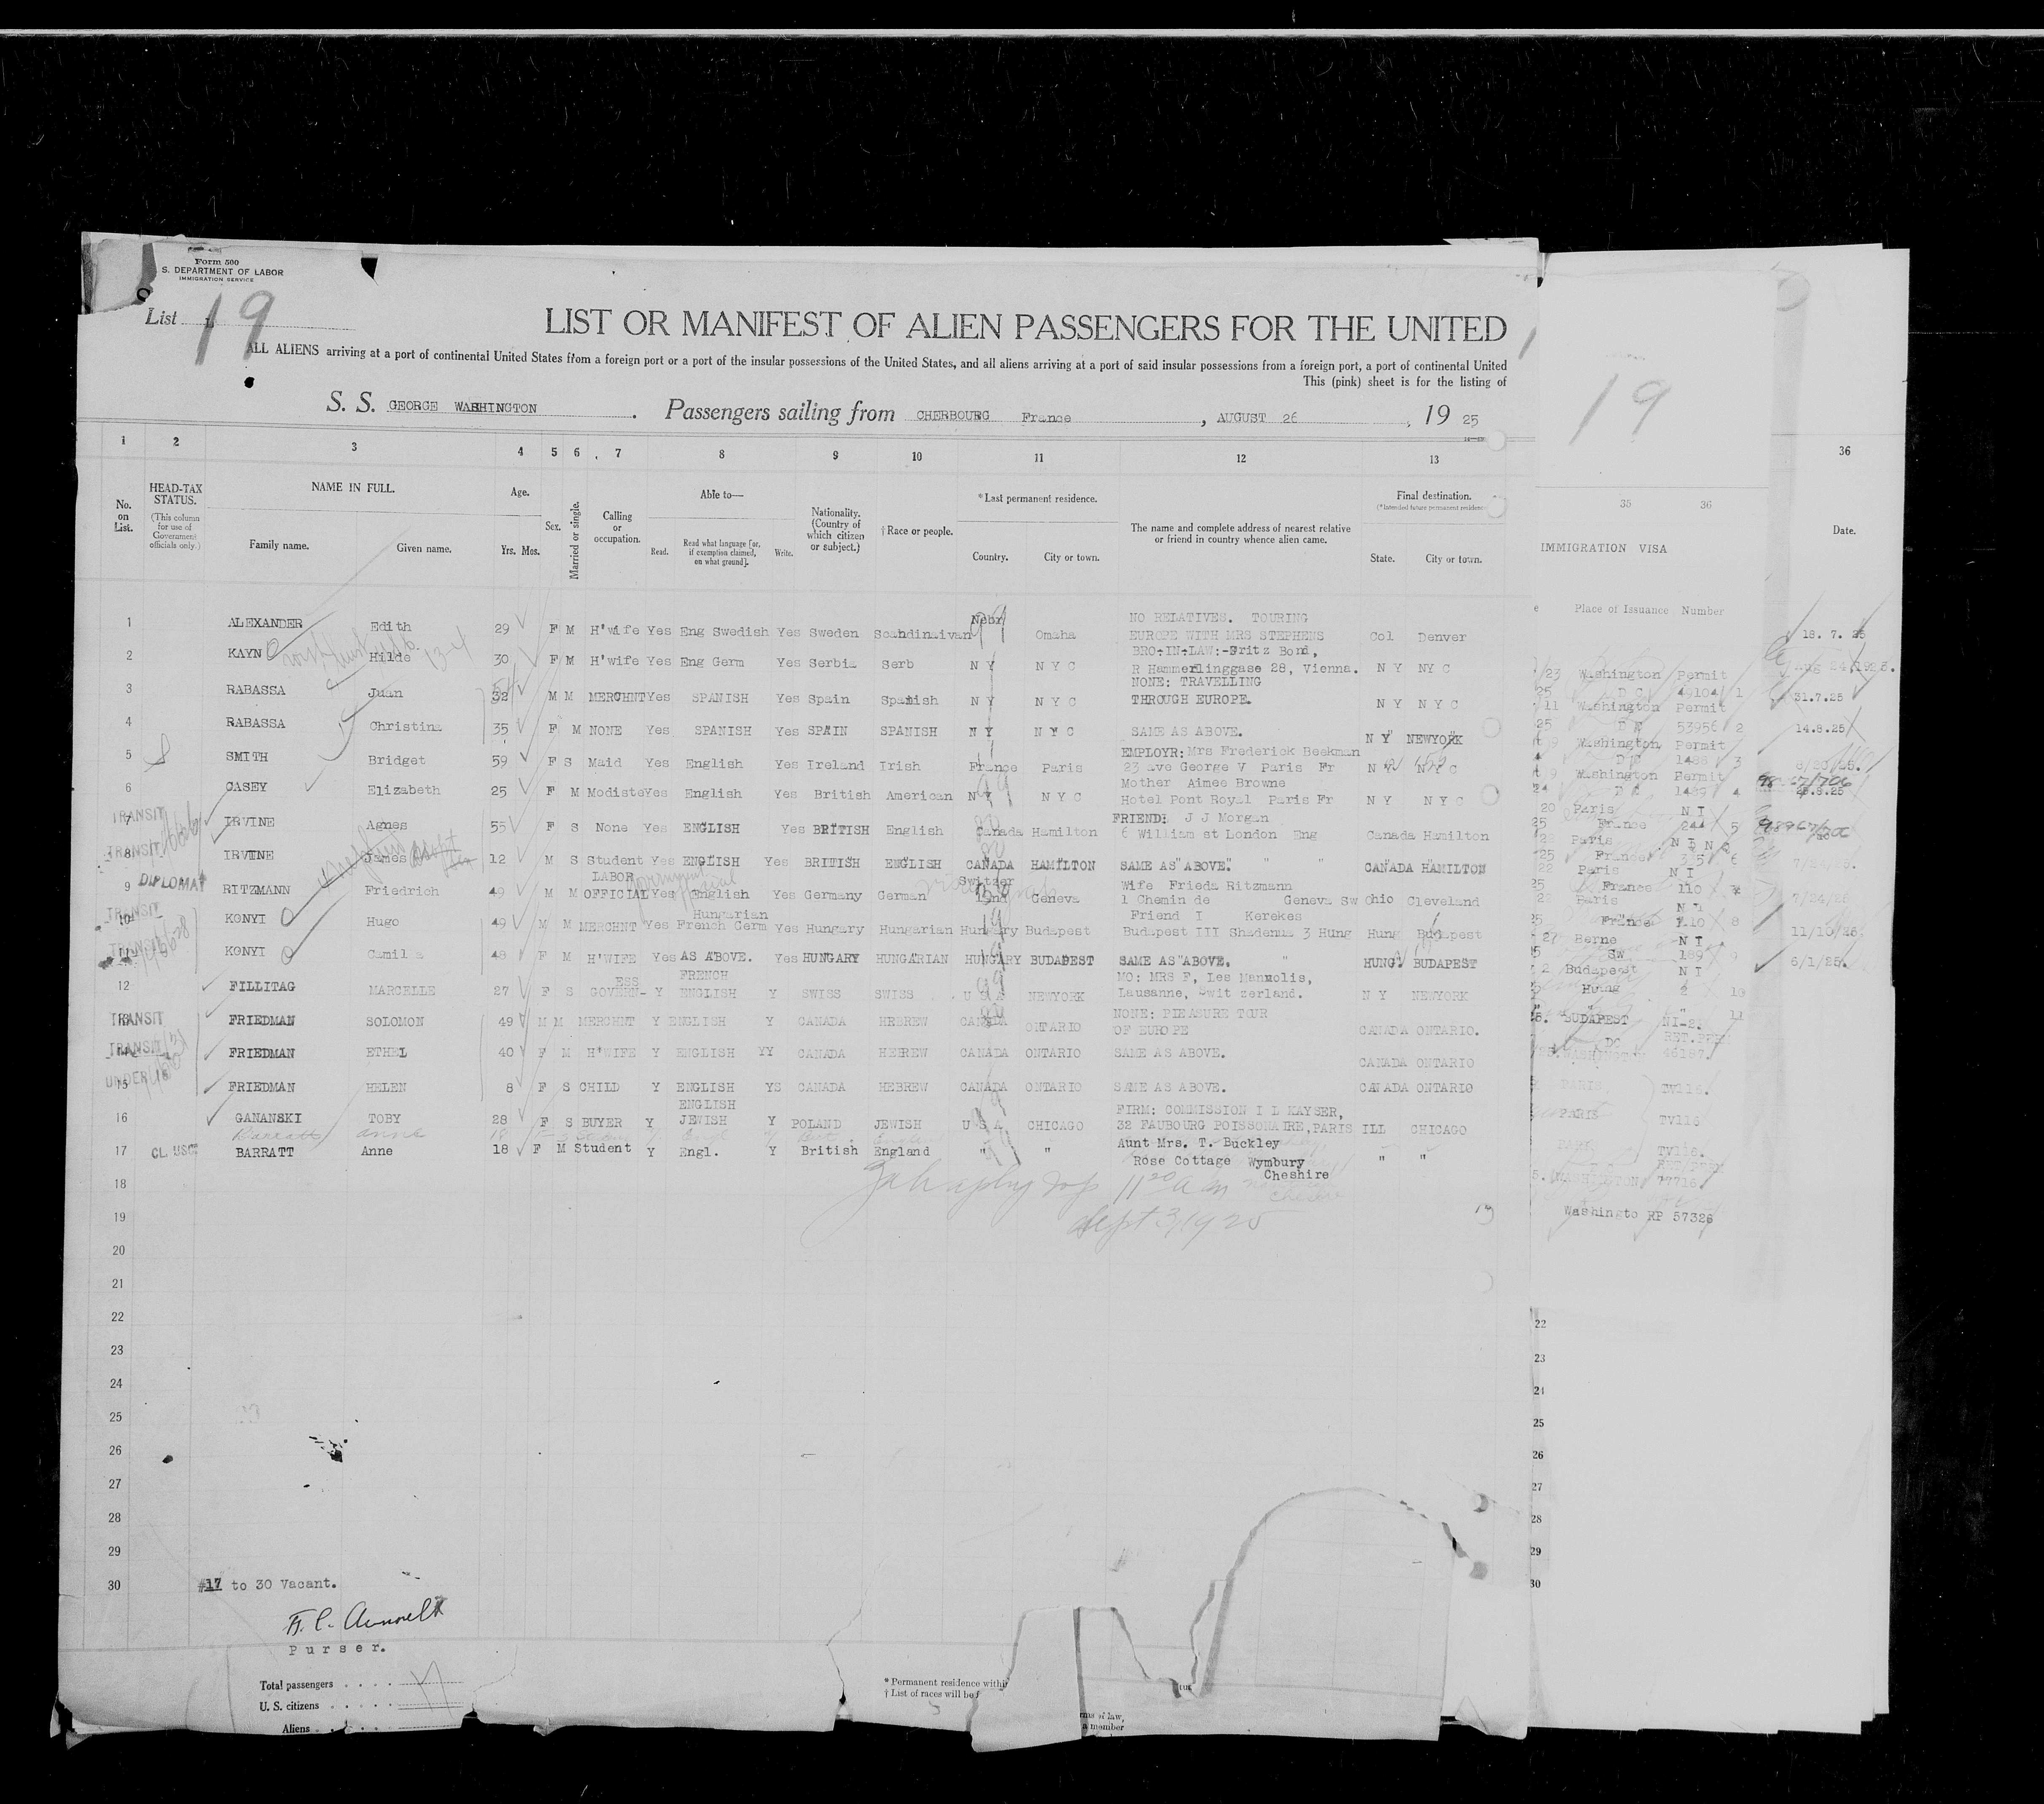 Form 500
S. DEPARTMENT OF LABOR
IMMIGRATION SERVICE
List 19
LIST OR MANIFEST OF ALIEN PASSENGERS FOR THE UNITED
ALL ALIENS arriving at a port of continental United States from a foreign port or a port of the insular possessions of the United States, and all aliens arriving at a port of said insular possessions from a foreign port, a port of continental United
This (pink) sheet is for the listing of
S. S. GEORGE WASHINGTON. Passengers sailing from CHERBOURG France, AUGUST 26, 1925
19
1 2 3 4 5 6 7 8 9 10 11 12 13 36
No. on List.
HEAD-TAX STATUS.
(This column for use of Government officials only.)
NAME IN FULL.
Family name. Given name.
Age.
Yrs. Mos.
Sex.
Married or single.
Calling or occupation.
Able to—
Read. Read what language [or, if exemption claimed, on what ground]. Write.
Nationality. (Country of which citizen or subject.)
† Race or people.
* Last permanent residence.
Country. City or town.
The name and complete address of nearest relative or friend in country whence alien came.
Final destination.
(* Intended future permanent residence
State. City or town.
35 36
IMMIGRATION VISA
Place of Issuance Number
Date.
1 ALEXANDER Edith 29 F M H'wife Yes Eng Swedish Yes Sweden Scandinaivan Nebr Omaha NO RELATIVES. TOURING EUROPE WITH MRS STEPHENS Col Denver
2 KAYN Hilde 30 F M H'wife Yes Eng Germ Yes Serbia Serb N Y N Y C BRO-IN-LAW:-Fritz Bond, R Hammerlinggase 28, Vienna. N Y NY C
3 RABASSA Juan 32 M M MERCHNT Yes SPANISH Yes Spain Spanish N Y N Y C NONE: TRAVELLING THROUGH EUROPE. N Y N Y C
4 RABASSA Christina 35 F M NONE Yes SPANISH Yes SPAIN SPANISH N Y N Y C SAME AS ABOVE. N Y NEWYORK
5 SMITH Bridget 59 F S Maid Yes English Yes Ireland Irish France Paris EMPLOYR: Mrs Frederick Beekman 23 ave George V Paris Fr N Y N Y C
6 CASEY Elizabeth 25 F M Modiste Yes English Yes British American N Y N Y C Mother Aimee Browne Hotel Pont Royal Paris Fr N Y N Y C
TRANSIT
7 IRVINE Agnes 55 F S None Yes ENGLISH Yes BRITISH English Canada Hamilton FRIEND: J J Morgan 6 William st London Eng Canada Hamilton
TRANSIT
8 IRVINE James 12 M S Student Yes ENGLISH Yes BRITISH ENGLISH CANADA HAMILTON SAME AS "ABOVE. " " CANADA HAMILTON
9 DIPLOMAT RITZMANN Friedrich 49 M M LABOR OFFICIAL Yes English Yes Germany German Switzer land Geneva Wife Frieda Ritzmann 1 Chemin de Geneva Sw Ohio Cleveland
TRANSIT
10 KONYI Hugo 49 M M MERCHNT Yes Hungarian French Germ Yes Hungary Hungarian Hungary Budapest Friend I Kerekes Budapest III Shadenua 3 Hung Hung Budapest
TRANSIT
11 KONYI Camilla 48 F M H'WIFE Yes AS ABOVE. Yes HUNGARY HUNGARIAN HUNGARY BUDAPEST SAME AS "ABOVE. " HUNG. BUDAPEST
12 FILLITAG MARCELLE 27 F S GOVERN-ESS Y FRENCH ENGLISH Y SWISS SWISS U S A NEWYORK MO: MRS F, Les Mannolis, Lausanne, Swit zerland. N Y NEWYORK
TRANSIT
FRIEDMAN SOLOMON 49 M M MERCHNT Y ENGLISH Y CANADA HEBREW CANADA ONTARIO NONE: PLEASURE TOUR OF EUROPE CANADA ONTARIO.
TRANSIT
FRIEDMAN ETHEL 40 F M H'WIFE Y ENGLISH YY CANADA HEBREW CANADA ONTARIO SAME AS ABOVE. CANADA ONTARIO
UNDER 16
15 FRIEDMAN HELEN 8 F S CHILD Y ENGLISH YS CANADA HEBREW CANADA ONTARIO SAME AS ABOVE. CANADA ONTARIO
16 GANANSKI TOBY 28 F S BUYER Y ENGLISH JEWISH Y POLAND JEWISH U S A CHICAGO FIRM: COMMISSION I L KAYSER, 32 FAUBOURG POISSONAIRE, PARIS ILL CHICAGO
Barratt Anne 18
17 CL. USC BARRATT Anne 18 F M Student Y Engl. Y British England " " Aunt Mrs. T. Buckley Rose Cottage Wymbury Cheshire " "
18
11 20 a m
19
Sept 3, 1925
20
21
22
23
24
25
26
27
28
29
30
#17 to 30 Vacant.
Purser.
Total passengers
U. S. citizens
Aliens
* Permanent residence withi
† List of races will be f
rms of law,
a member
18. 7. 25
Washington Permit Aug 24, 1925.
D C 49104 1 31.7.25
Washington Permit
53956 2 14.8.25
Washington Permit
1488 3 8/20/25.
Washington Permit
1489 4 25.8.25
Paris N I
France 244 5
Paris N I
France 315 6 7/24/25.
Paris N I
France 110
Paris N I 7/24/25
France 110 8
Berne N I 11/10/25
Sw 189 9
Budapest N I 6/1/25.
Hung 2 10
BUDAPEST " 11
DC NI-2
WASHINGTON 46187.
PARIS TV116.
PARIS TV116
PARIS TV116.
WASHINGTON 77716
Washingto RP 57328
22
23
24
25
26
27
28
29
30